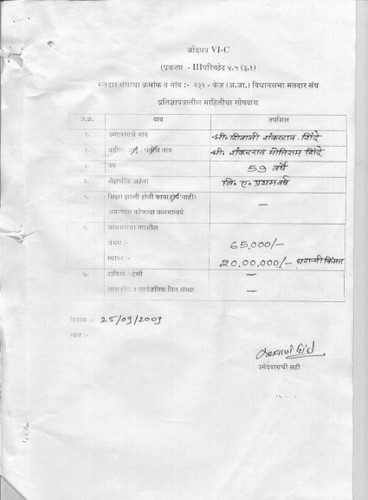 जोडपत्र VI-C
(प्रकरण - III परिच्छेद ४.५ (३.१)
मतदार संघाचा क्रमांक व नांव :- २३२ - केज (अ.जा.) विधानसभा मतदार संघ
प्रतिज्ञापत्रातील माहितीचा गोषवारा
अ.क्र. बाब तपशिल
उमेदवाराचे नाव श्री. शिवाजी शंकरराव शिंदे
वडील / पतीचे नांव श्री. शंकरराव मोतिराम शिंदे
वय 59 वर्षे
शैक्षणिक अर्हता बि. ए. प्रथम वर्ष
शिक्षा झाली होती काय (होय/नाही) —
असल्यास कोणत्या कलमान्वये
मालमत्तेचा तपशील
जंगम :- 65,000/-
स्थावर :- 20,00,000/- घराची किंमत
दायित्व / देणी —
शासकीय व सार्वजनिक वित्त संस्था —
दिनांक :- 25/09/2009
स्थळ :-
उमेदवाराची सही